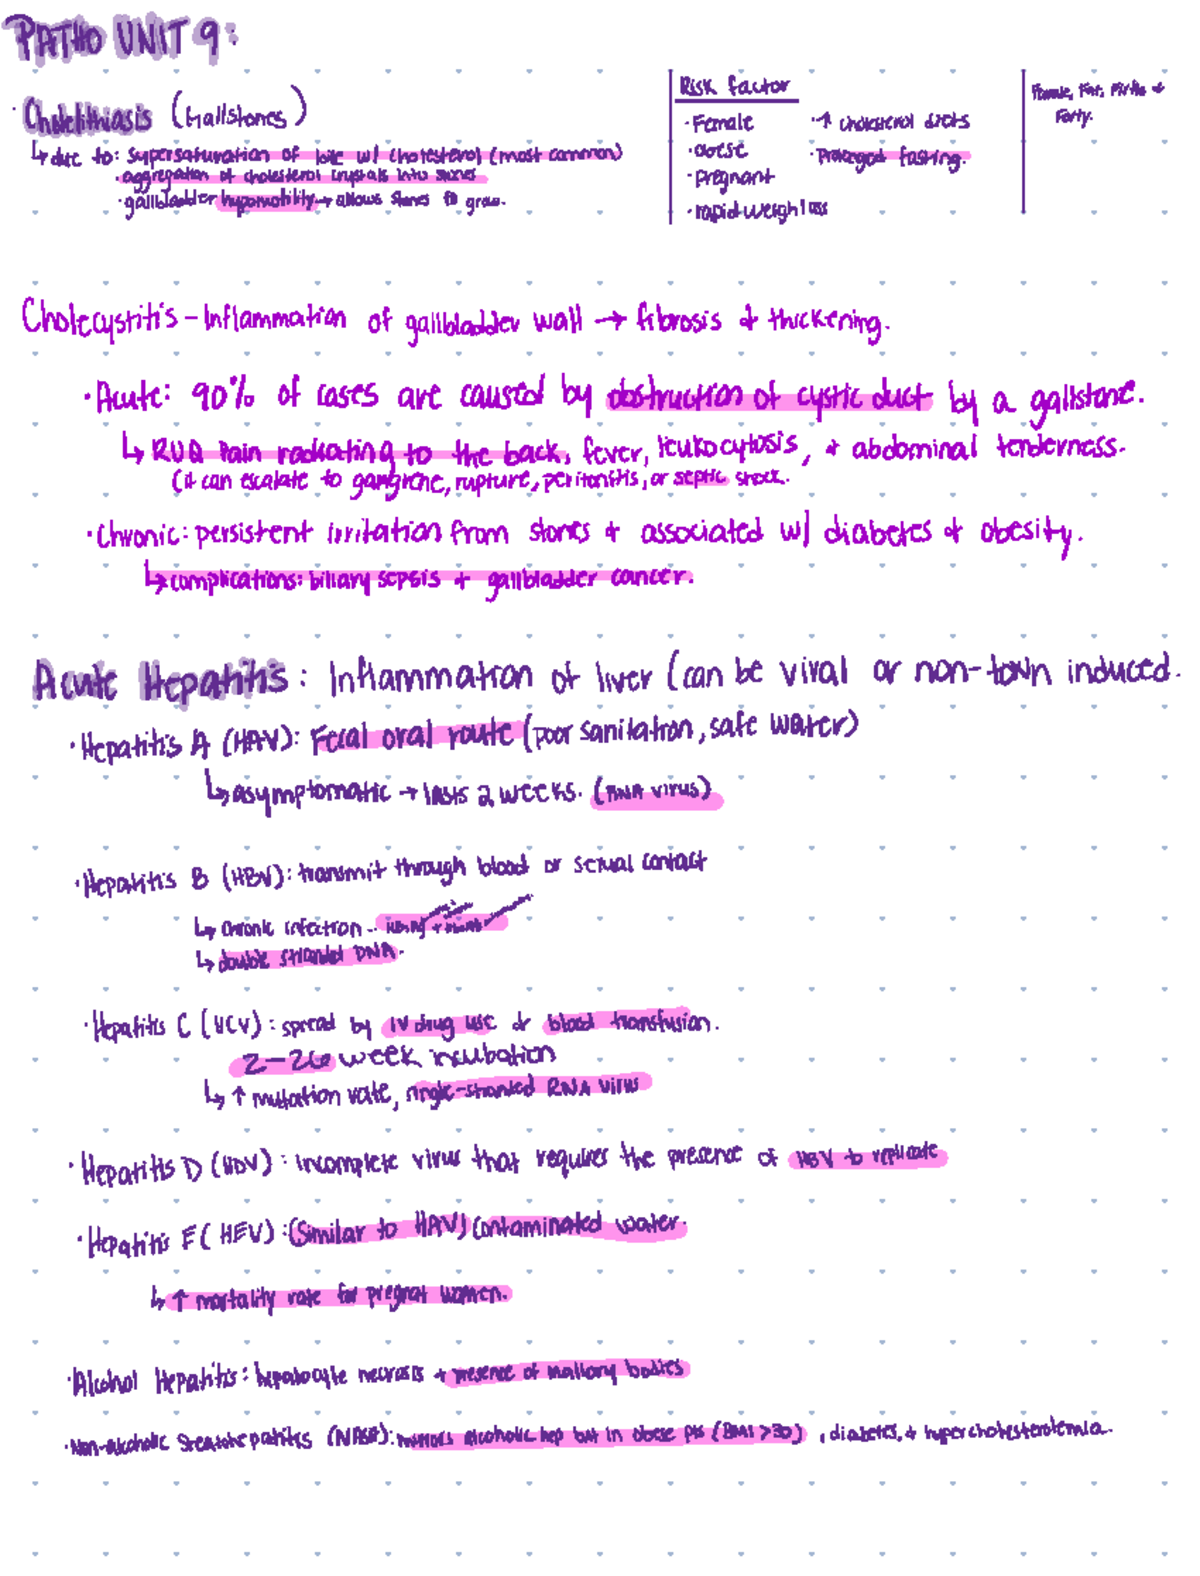 PATHO UNIT 9:
· Cholelithiasis (Gallstones)
↳ due to: supersaturation of bile w/ cholesterol (most common)
· aggregation of cholesterol crystals into stones
· gallbladder hypomotility → allows stones to grow.
Risk factor
· Female
· obese
· pregnant
· rapid weigh loss
· ↑ cholesterol diets
· Prolonged fasting.
Female, Fat, Fertile +
Forty.
Cholecystitis – Inflammation of gallbladder wall → fibrosis & thickening.
· Acute: 90% of cases are caused by obstruction of cystic duct by a gallstone.
↳ RUQ Pain radiating to the back, fever, leukocytosis, + abdominal tenderness.
(it can escalate to gangrene, rupture, peritonitis, or septic shock.
· Chronic: persistent irritation from stones + associated w/ diabetes + obesity.
↳ complications: biliary sepsis + gallbladder cancer.
Acute Hepatitis: Inflammation of liver (can be viral or non- induced.
· Hepatitis A (HAV): Fecal oral route (poor sanitation, safe water)
↳ asymptomatic → lasts 2 weeks. (RNA virus)
· Hepatitis B (HBV): transmit through blood or sexual contact
↳ chronic infection
↳ double stranded DNA.
· Hepatitis C (HCV): spread by IV drug use or blood transfusion.
2–26 week incubation
↳ ↑ mutation rate, single-stranded RNA virus
· Hepatitis D (HDV): incomplete virus that requires the presence of HBV to replicate
· Hepatitis E (HEV): (Similar to HAV) contaminated water.
↳ ↑ mortality rate for pregnat women.
· Alcohol Hepatitis: hepatocyte necrosis + presence of mallory bodies
· Non-alcoholic Steatohepatitis (NASH): mimics alcoholic hep but in obese pts (BMI >30), diabetes, + hypercholesterolemia.